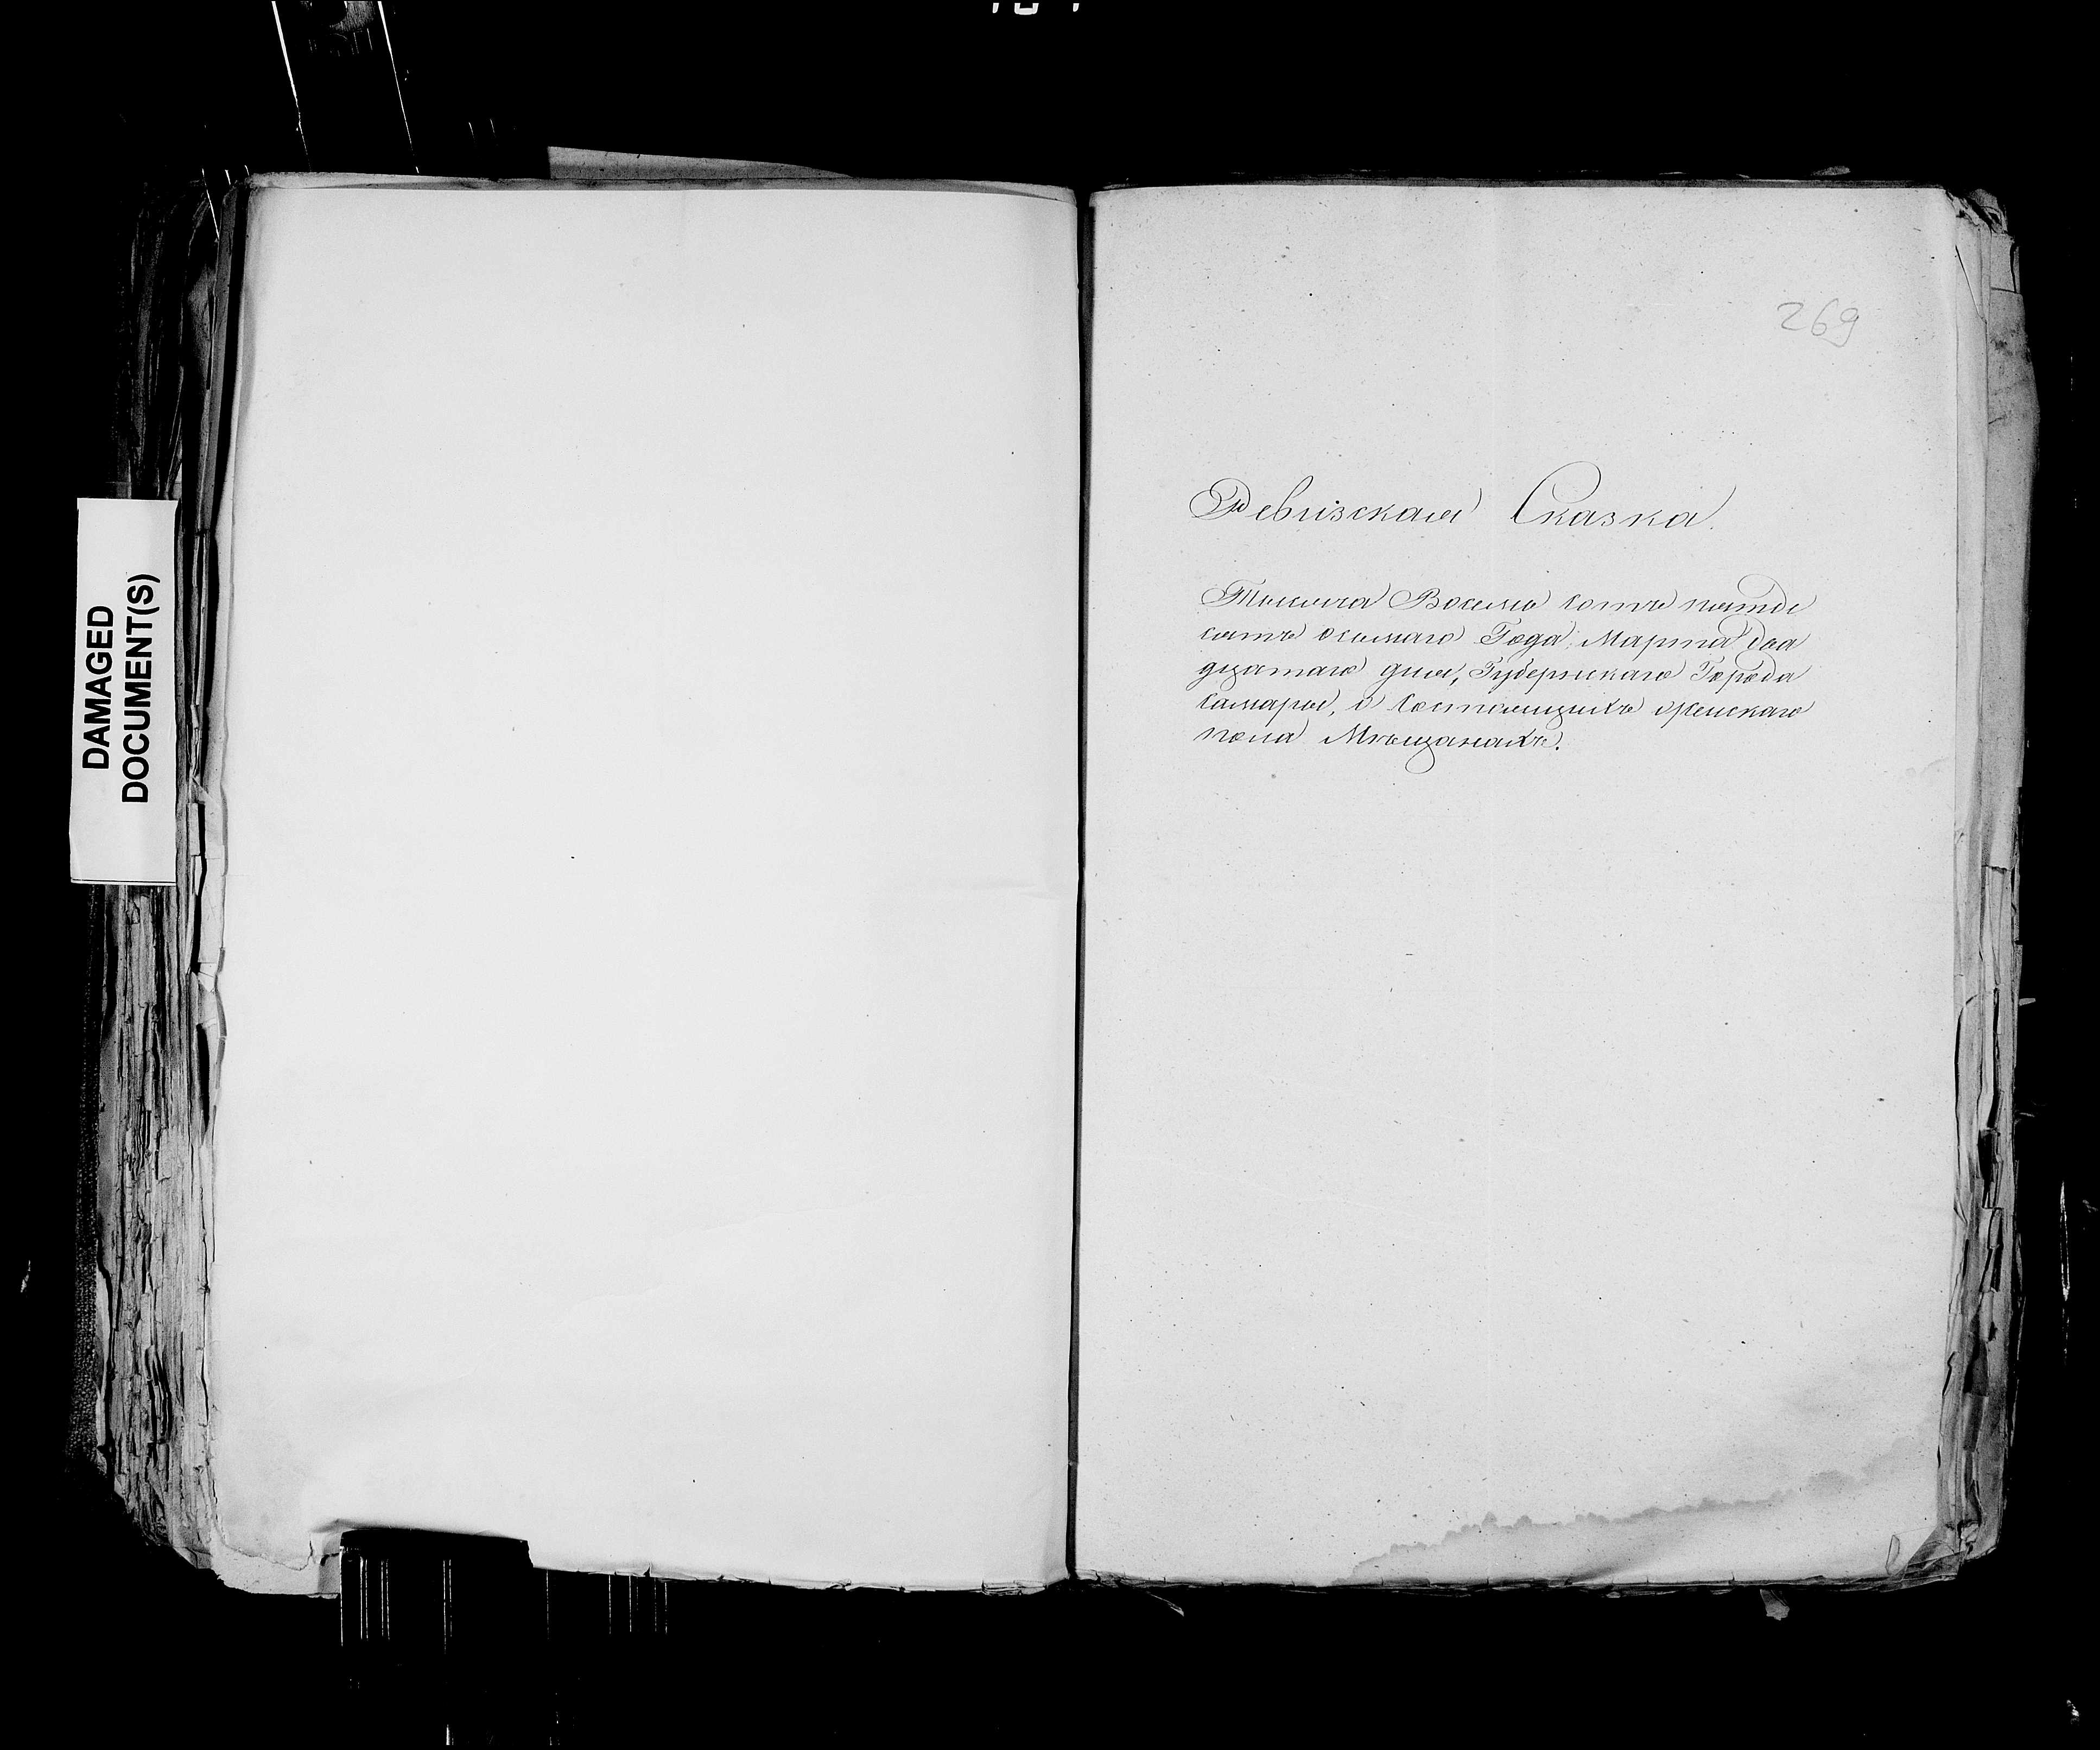 DAMAGED
DOCUMENT(S)
269
Ревизская Сказка.
Тысяча Восемь сотъ пятде
сятъ осьмаго Года, Марта два
дцатаго дня, Губернскаго Города
Самары, о состоящихъ женскаго
пола Мѣщанахъ.